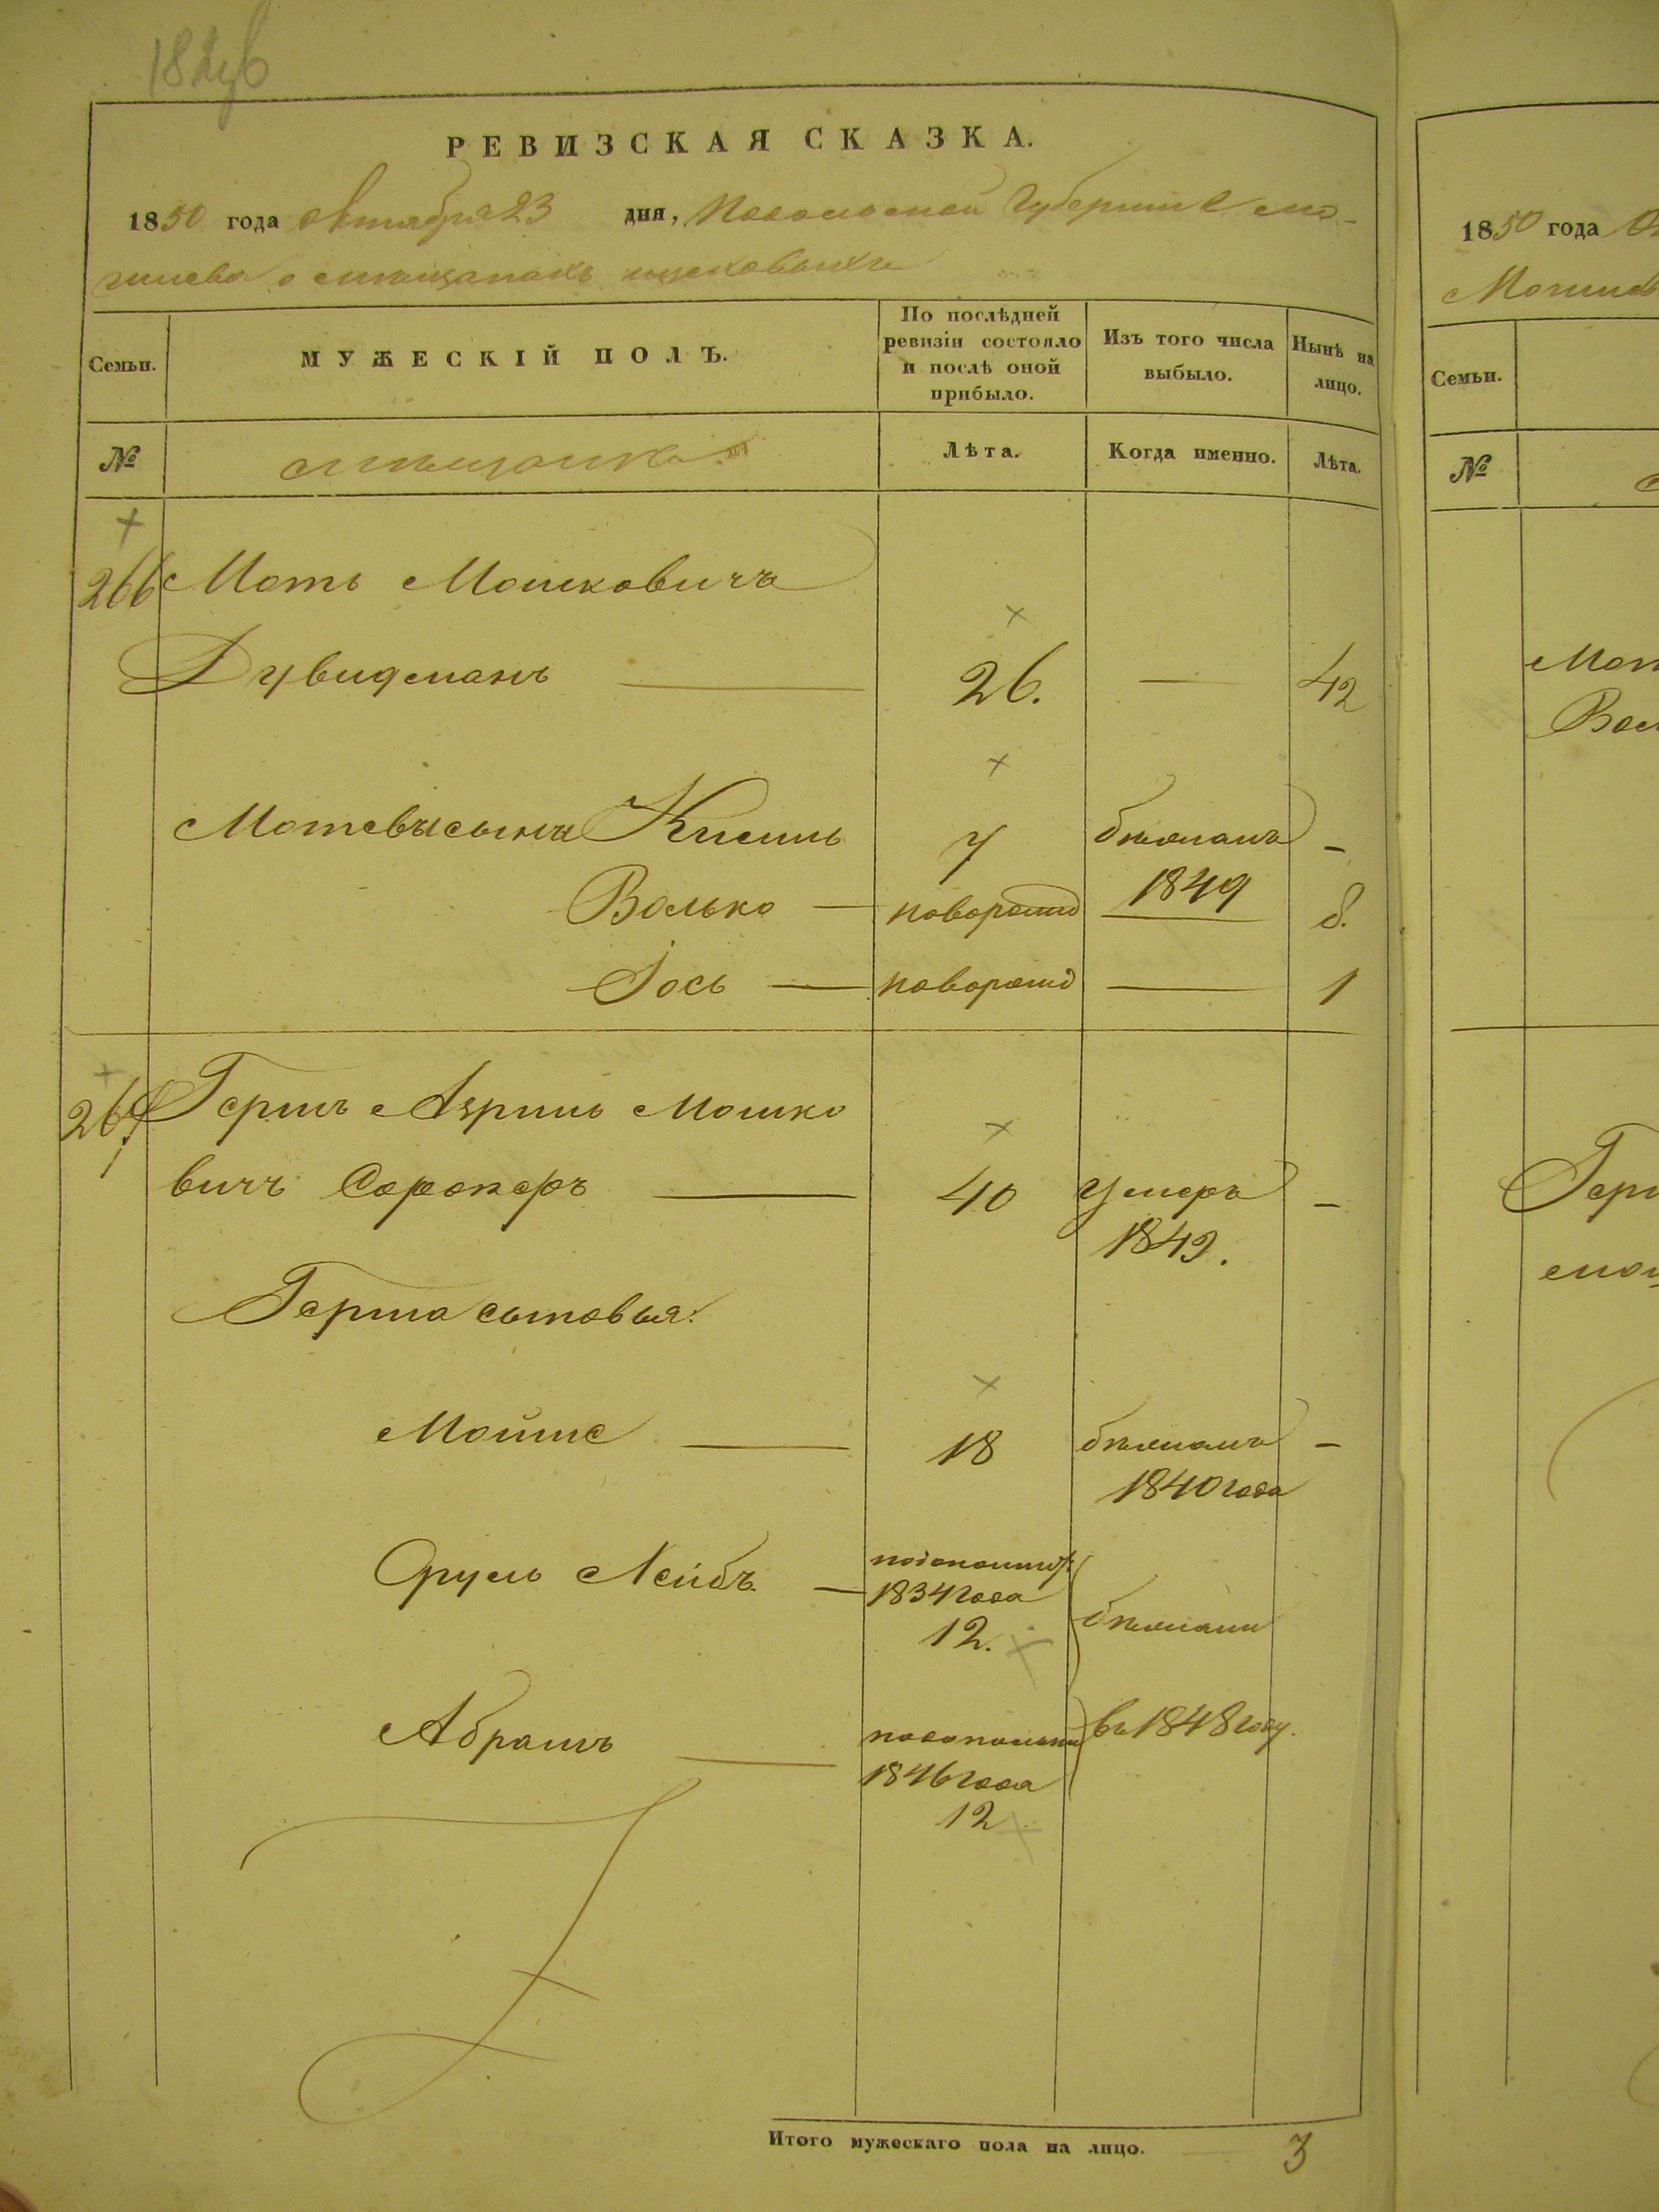 РЕВИЗСКАЯ СКАЗКА.
1850 года октября 23 дня, Подольской Губернии Мо-
гилева о мещанахъ
Семьи.
МУЖЕСКІЙ ПОЛЪ.
По послѣдней
ревизіи состояло
и послѣ оной
прибыло.
Изъ того числа
выбыло.
Нынѣ на
лицо.
№
Лѣта.
Когда именно.
Лѣта.
266 Моть Мошковичъ
Дувидманъ — 26. — 42
Мотевы сыны Кисиль 7 бѣжалъ –
1849
Волько — новорожд — 8.
Іось — новорожд — 1
267 Гершъ Азриль Мошко
вичъ Сорокеръ — 40 умеръ –
1849.
Герша сыновья:
Мойше — 18 бѣжалъ –
1840 года
Сруль Лейбъ —
1834 года
12.
бѣжали
Абрамъ —
1846 года
12
въ 1848 году.
Итого мужескаго пола на лицо. 3
1850 года
Могилев
Семьи.
№